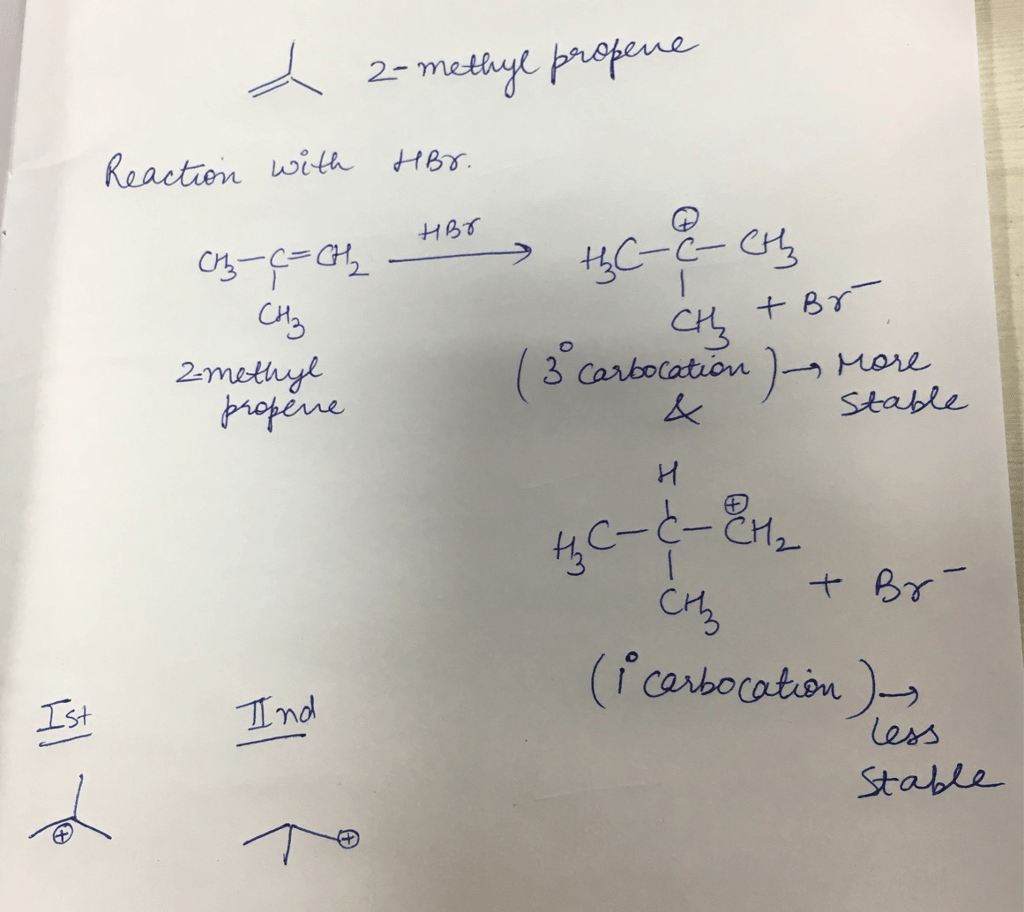 2-methyl propene
Reaction with HBr.
CH3-C=CH2 HBr H3C-C-CH3
⊕
CH3
CH3 + Br-
2-methyl
propene
(3° carbocation) → More
Stable
&
H
H3C-C-CH2
⊕
CH3
+ Br-
(1° carbocation) →
less
Stable
Ist IInd
⊕ ⊕